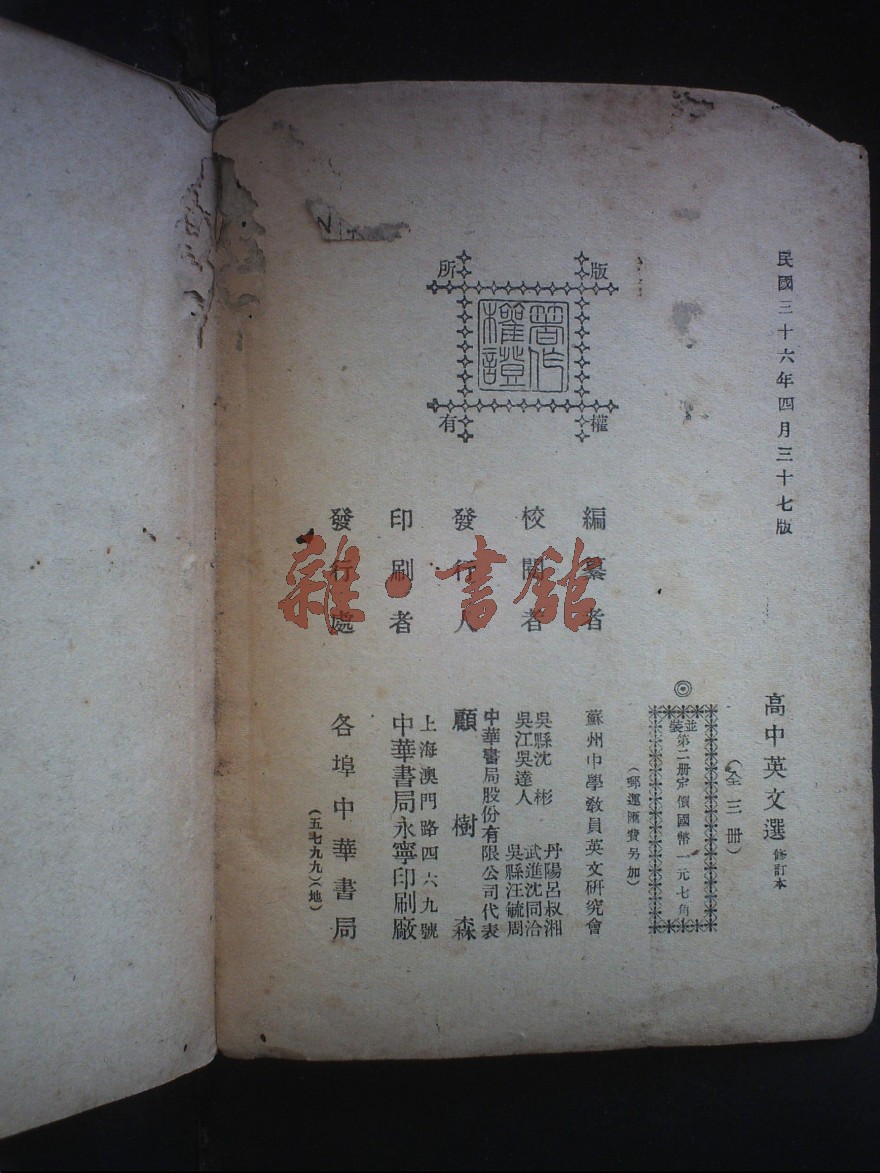 民國三十六年四月三十七版
高中英文選 修訂本
(全三册)
◎
並裝
第二册定價國幣一元七角
(郵運匯費另加)
版權
所有
著作
權證
編纂者
蘇州中學敎員英文研究會
校閱者
丹陽呂叔湘
吳縣沈彬
武進沈同洽
吳江吳達人
吳縣汪毓周
發行人
中華書局股份有限公司代表
顧樹森
印刷者
上海澳門路四六九號
中華書局永寧印刷廠
發行處
各埠中華書局
(五七九九)(地)
雜·書館